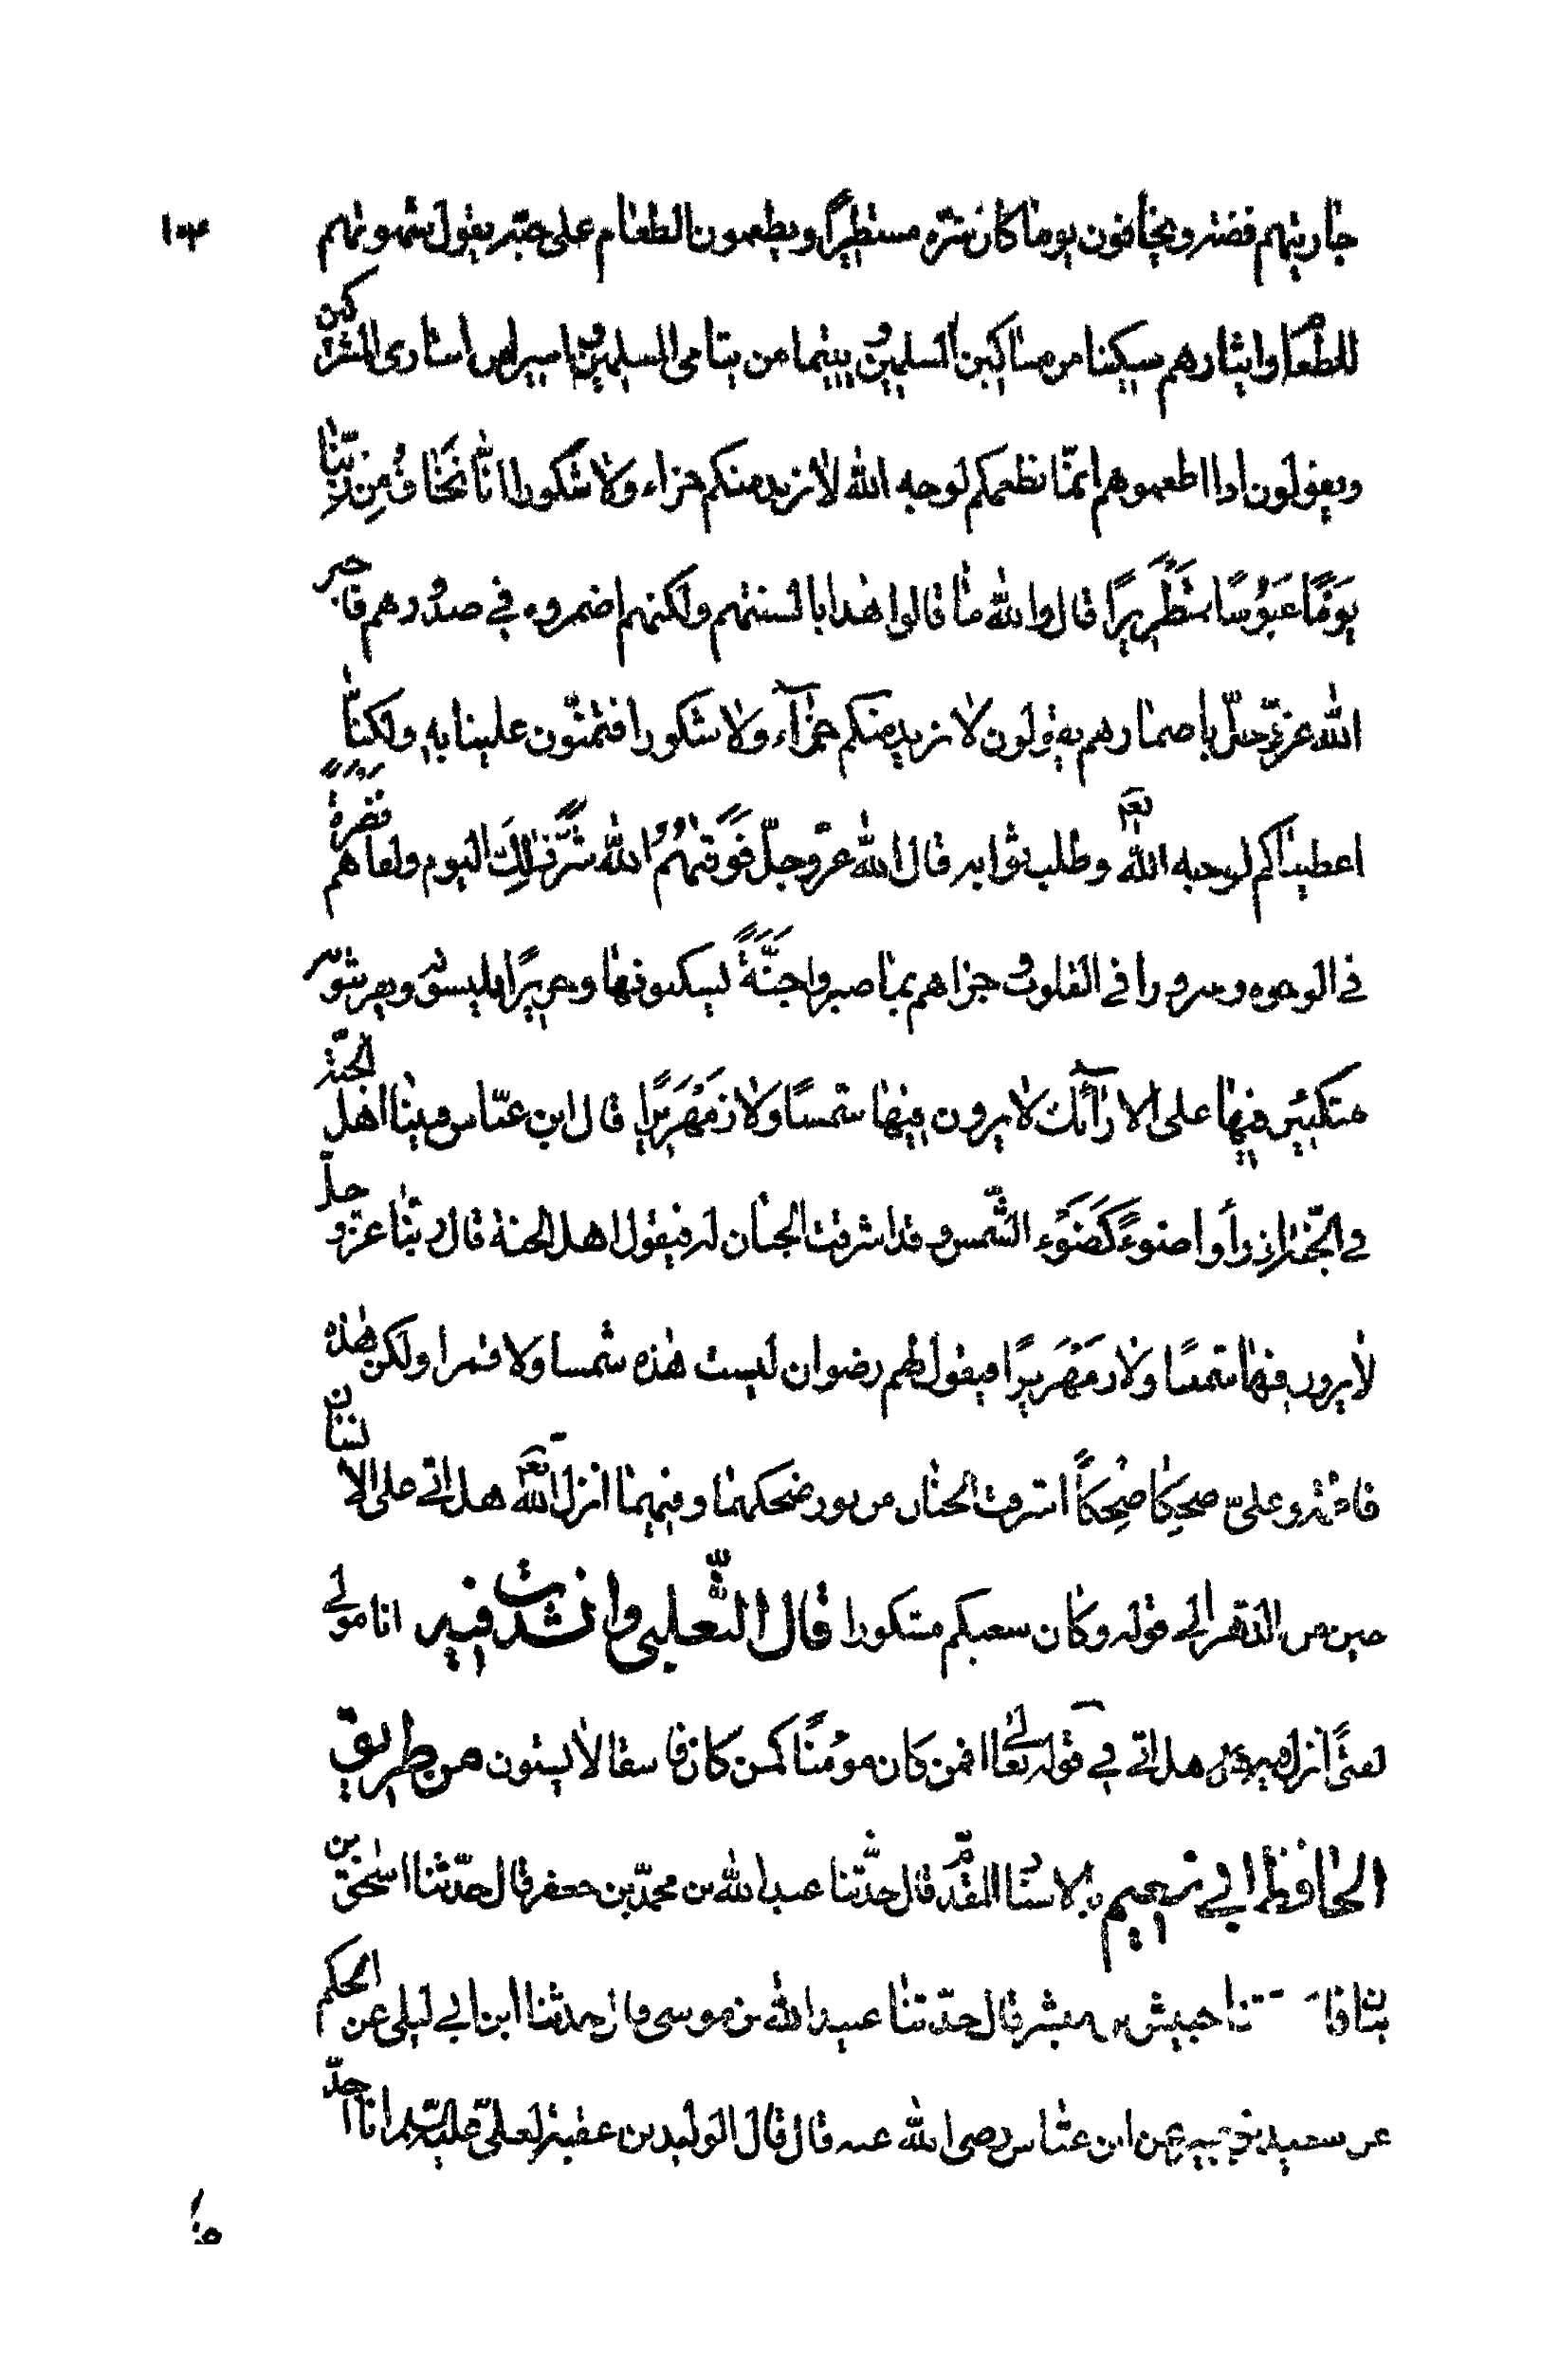 جاريتهم فضة ويخافون يوما كان شره مستطيرا ويطعمون الطعام على حبه يقول شهوتهم
للطعام وايثارهم مسكينا من مساكين المسلمين ويتيما من يتامى المسلمين واسيرا من اسارى المشركين
ويقولون اذا اطعموهم انما نطعمكم لوجه الله لا نريد منكم جزاء ولا شكورا انا نخاف من ربنا
يوما عبوسا قمطريرا قال والله ما قالوا هذا بالسنتهم ولكنهم اضمروه في صدورهم فاخبر
الله عز وجل باضمارهم يقولون لا نريد منكم جزآء ولا شكورا فتمنون علينا به ولكنا
اعطيناكم لوجه الله تعالى وطلب ثوابه قال الله عز وجل فوقٰهم الله شر ذلك اليوم ولقاهم نضرة
في الوجوه وسرورا في القلوب وجزاهم بما صبروا جنة يسكنونها وحريرا يلبسونه ويفرشونه
متكئين فيها على الارآئك لا يرون فيها شمسا ولا زمهريرا قال ابن عباس فبينا اهل الجنة
في الجنة اذ رأوا ضوءً كضوء الشمس وقد اشرقت الجنان له فيقول اهل الجنة قال ربنا عز وجل
لا يرون فيها شمسا ولا زمهريرا فيقول لهم رضوان ليست هذه شمسا ولا قمرا ولكن هذه
فاطمة وعلي ضحكا ضحكاً اشرقت الجنان من نور ضحكهما وفيهما انزل الله تعالى هل اتى على الانسان
حين من الدهر الى قوله وكان سعيكم مشكورا قال الثعلبي وانشدت فيه انا مولى
لفتىً انزل فيه هل اتى في قوله تعالى افمن كان مؤمنًا كمن كان فاسقا لا يستون من طريق
الحافظ ابي نعيم بالاسناد المقدم قال حدثنا عبد الله بن محمد بن جعفر قال حدثنا اسحق بن
بنان حبيش بن مبشر قال حدثنا عبيد الله بن موسى قال حدثنا ابن ابي ليلى عن الحكم
عن سعيد بن جبير عن ابن عباس رضى الله عنه قال قال الوليد بن عقبة لعلي عليه السلم انا احد